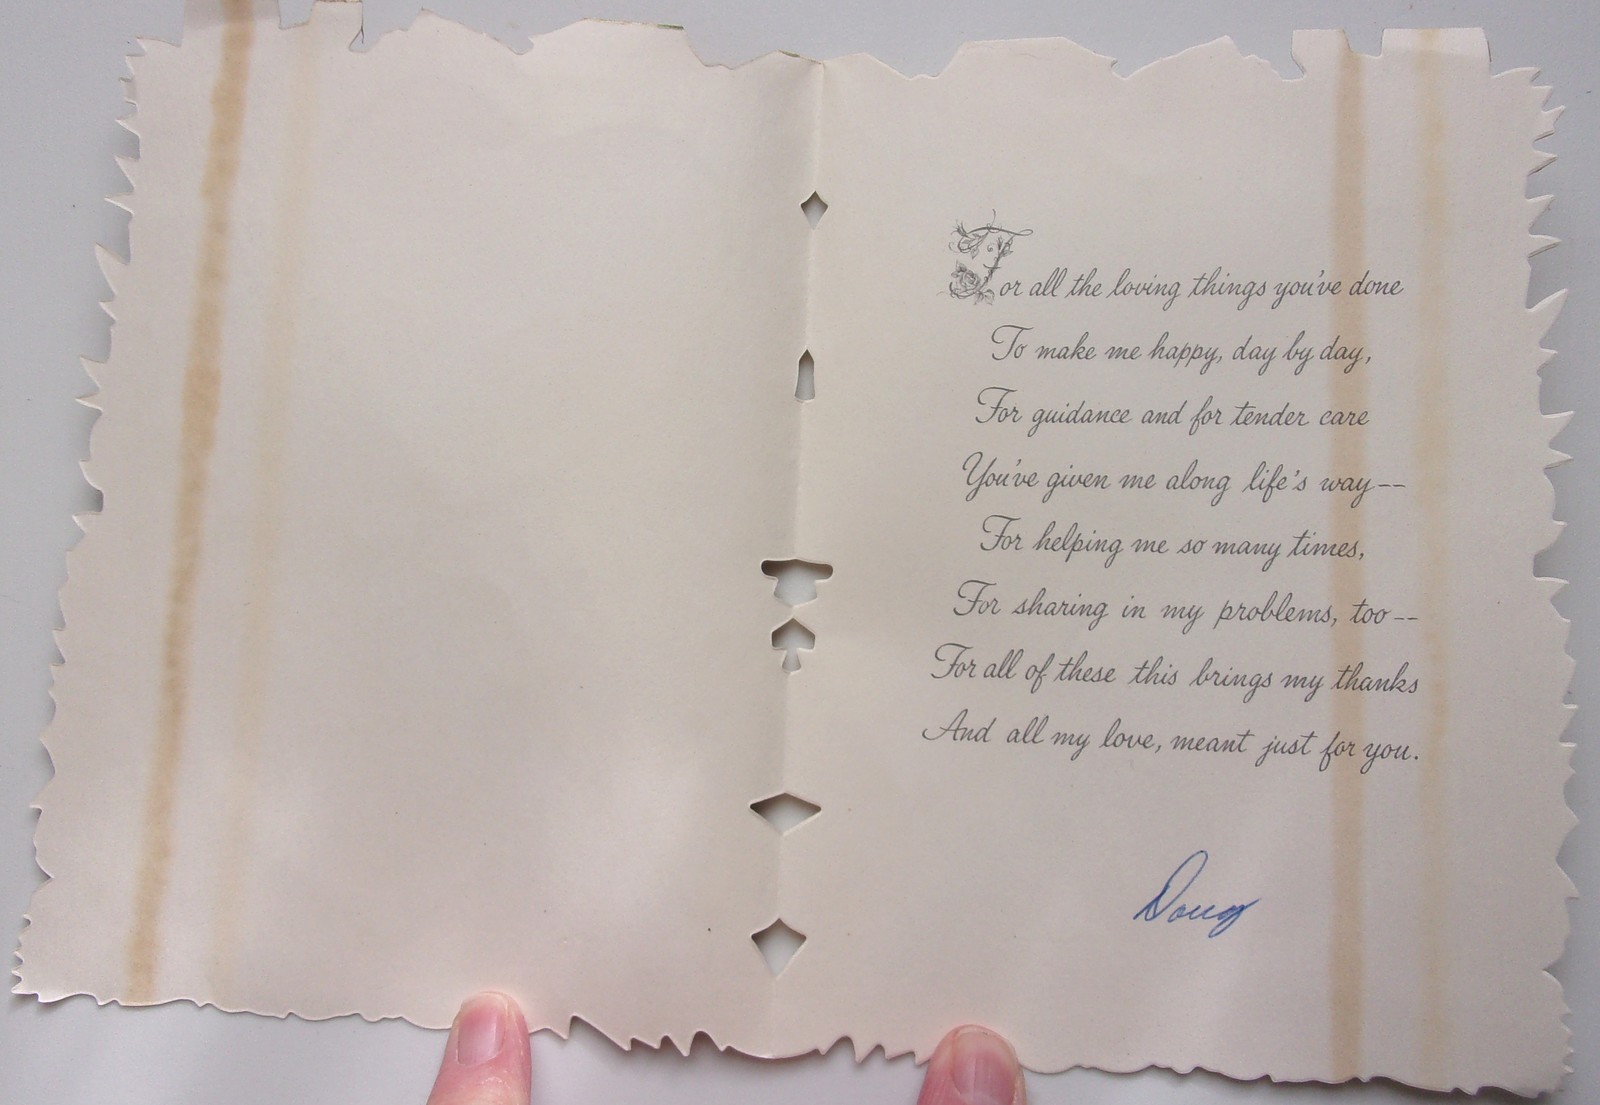 For all the loving things you've done
To make me happy, day by day,
For guidance and for tender care
You've given me along life's way--
For helping me so many times,
For sharing in my problems, too--
For all of these this brings my thanks
And all my love, meant just for you.
Doug